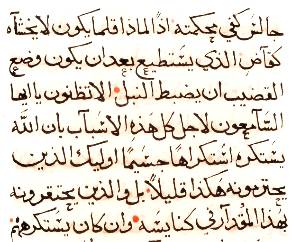 جالس كفي محكمته اذاً لماذا قلما يكون لا يخشاه
كقاض الذي يستطيع بعد ان يكون وضع
القضيب ان يضبط النبل الا تظنون يا ايها
السامعون لاجل كل هذه الاسباب بان الله
يستكره استكراهاً جسيما اوليك الذين
يحترمونه هكذا قليلاً بل والذين يحتقرونه
بهذا المقدار في كنايسه وان كان يستكرههم